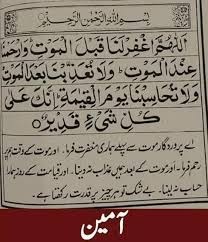 بِسْمِ اللّٰهِ الرَّحْمٰنِ الرَّحِيْمِ
اَللّٰهُمَّ اغْفِرْ لَنَا قَبْلَ الْمَوْتِ وَارْحَمْنَا
عِنْدَ الْمَوْتِ وَلَا تُعَذِّبْنَا بَعْدَ الْمَوْتِ
وَلَا تُحَاسِبْنَا يَوْمَ الْقِيٰمَةِ اِنَّكَ عَلٰى
كُلِّ شَىْءٍ قَدِيْرٌ
اے پروردگار موت سے پہلے ہماری مغفرت فرما۔ اور موت کے وقت ہم پر
رحم فرما۔ اور موت کے بعد ہمیں عذاب نہ دینا۔ اور قیامت کے روز ہما
حساب نہ لینا۔ بے شک تو ہر چیز پر قدرت رکھتا ہے۔
آمین